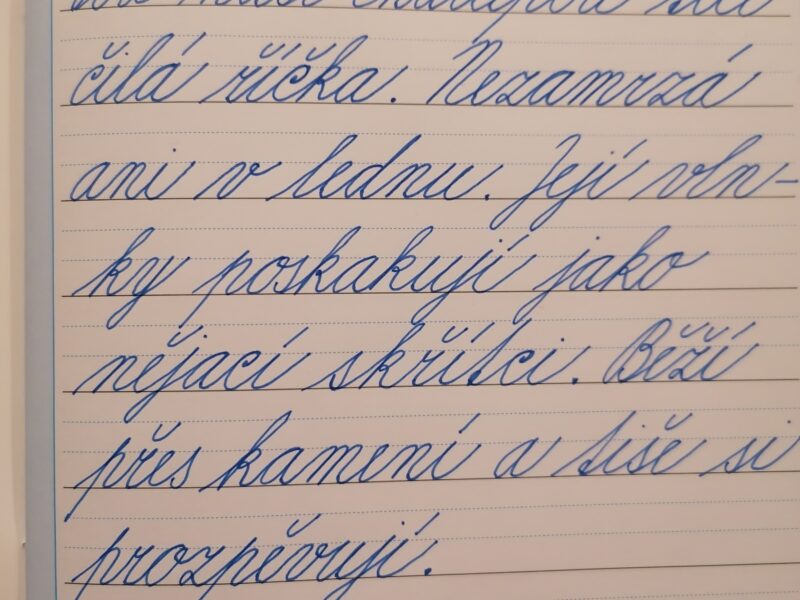 čilá říčka. Nezamrzá
ani v lednu. Její vln-
ky poskakují jako
nějací skřítci. Běží
přes kamení a tiše si
prozpěvují.